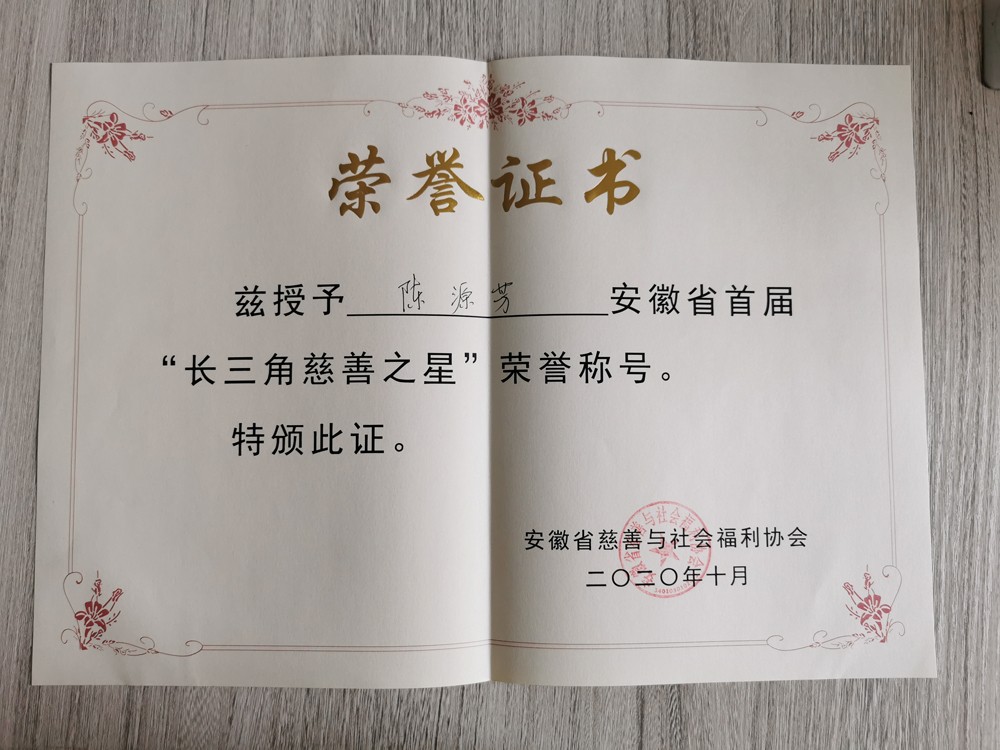 荣誉证书
兹授予 陈源芳 安徽省首届
“长三角慈善之星”荣誉称号。
特颁此证。
安徽省慈善与社会福利协会
二〇二〇年十月
安徽省慈善与社会福利协会